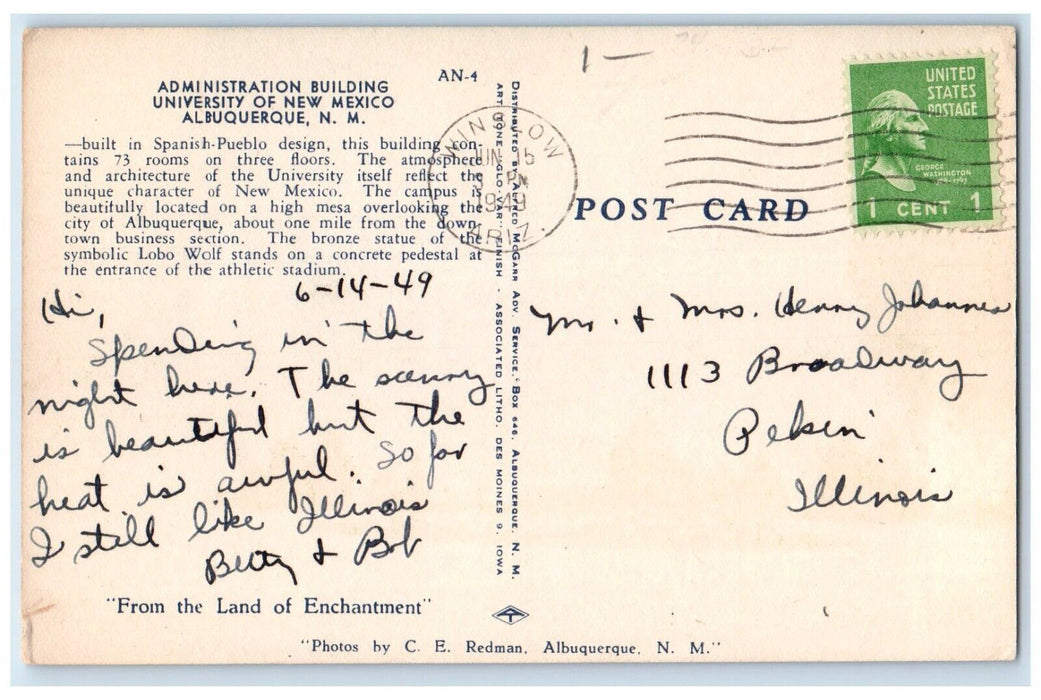 1 —
AN-4
ADMINISTRATION BUILDING
UNIVERSITY OF NEW MEXICO
ALBUQUERQUE, N. M.
—built in Spanish-Pueblo design, this building con-
tains 73 rooms on three floors. The atmosphere
and architecture of the University itself reflect the
unique character of New Mexico. The campus is
beautifully located on a high mesa overlooking the
city of Albuquerque, about one mile from the down-
town business section. The bronze statue of the
symbolic Lobo Wolf stands on a concrete pedestal at
the entrance of the athletic stadium.
6-14-49
Hi,
Spending in the
night here. The scenery
is beautiful but the
heat is awful. So far
I still like Illinois
Betty & Bob
"From the Land of Enchantment"
DISTRIBUTED BY ALFRED MCGARR ADV. SERVICE, BOX 646, ALBUQUERQUE, N. M.
ART-TONE "GLO-VAR" FINISH - ASSOCIATED LITHO. DES MOINES 9, IOWA
WINSLOW
JUN 15
PM
1949
ARIZ.
POST CARD
UNITED
STATES
POSTAGE
GEORGE
WASHINGTON
1 CENT 1
Mr. & Mrs. Henry Johannes
1113 Broadway
Pekin
Illinois
"Photos by C. E. Redman, Albuquerque, N. M."